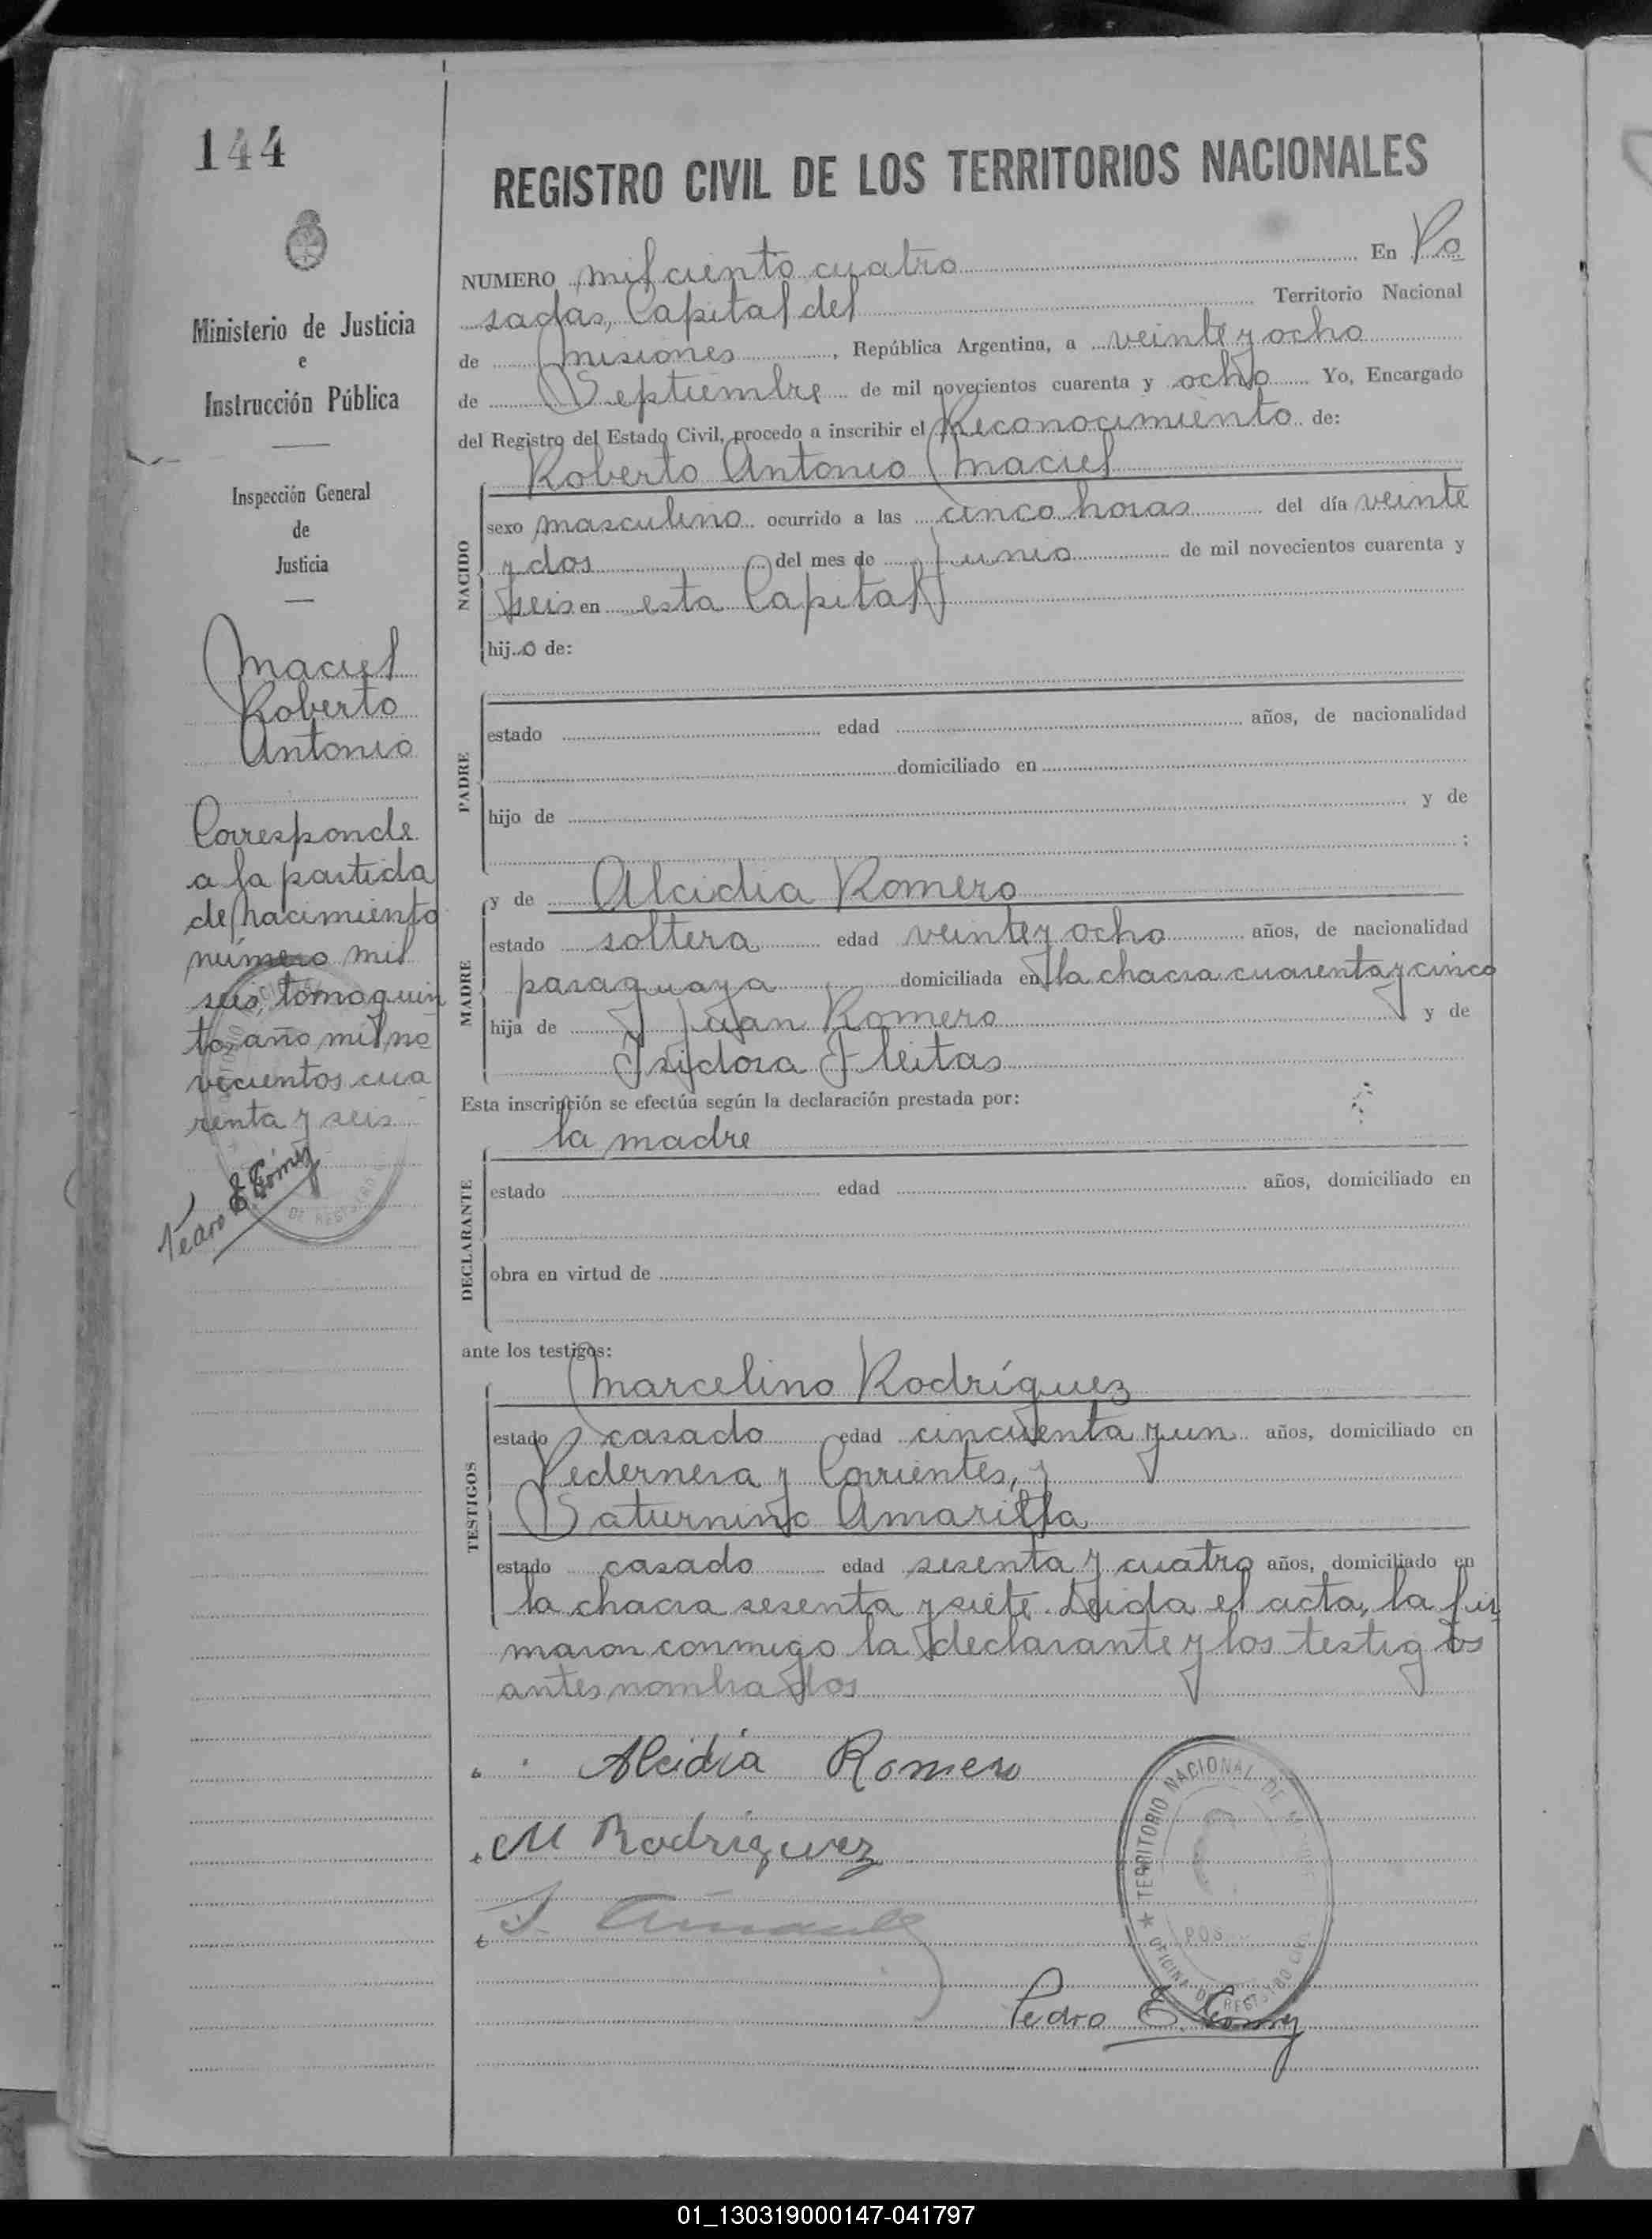 144
Ministerio de Justicia
e
Instrucción Pública
Inspección General
de
Justicia
Maciel
Roberto
Antonio
Corresponde
a la partida
de nacimiento
número mil
seis, tomo quin
to, año mil no
vecientos cua
renta y seis
Pedro E. Gómez
REGISTRO CIVIL DE LOS TERRITORIOS NACIONALES
NUMERO mil ciento cuatro En Po
sadas, Capital del Territorio Nacional
de Misiones, República Argentina, a veinte y ocho
de Septiembre de mil novecientos cuarenta y ocho Yo, Encargado
del Registro del Estado Civil, procedo a inscribir el Reconocimiento de:
Roberto Antonio Maciel
NACIDO
sexo masculino ocurrido a las cinco horas del día veinte
y dos del mes de Junio de mil novecientos cuarenta y
seis en esta Capital
hijo de:
PADRE
estado edad años, de nacionalidad
domiciliado en
hijo de y de
;
y de Alcidia Romero
MADRE
estado soltera edad veinte y ocho años, de nacionalidad
paraguaya domiciliada en la chacra cuarenta y cinco
hija de Juan Romero y de
Isidora Fleitas
Esta inscripción se efectúa según la declaración prestada por:
la madre
DECLARANTE
estado edad años, domiciliado en
obra en virtud de
ante los testigos:
Marcelino Rodríguez
TESTIGOS
estado casado edad cincuenta y un años, domiciliado en
Pedernera y Corrientes, y
Saturnino Amarilla
estado casado edad sesenta y cuatro años, domiciliado en
la chacra sesenta y siete. Leida el acta, la fir
maron conmigo la declarante y los testigos
antes nombrados
Alcidia Romero
M Rodríguez
TERRITORIO NACIONAL DE
POS
OFICINA DE REGISTRO
Pedro E. Gómez
01_130319000147-041797